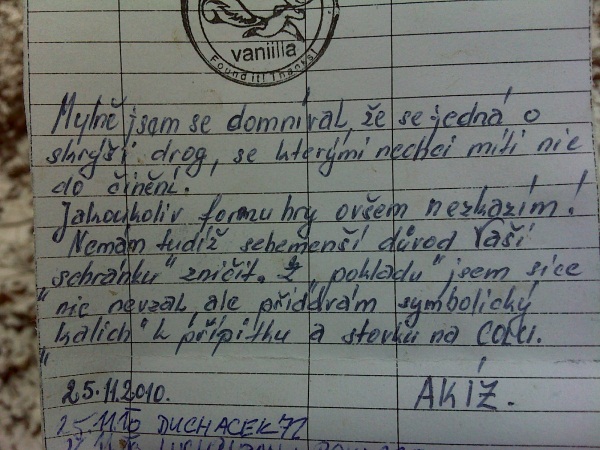 vanilla
Found it! Thanks!
Mylně jsem se domníval, že se jedná o
skrýši drog, se kterými nechci míti nic
do činění.
Jakoukoliv formu hry ovšem nezkazím!
Nemám tudíž sebemenší důvod Vaši
"schránku" zničit. Z "pokladu" jsem sice
nic nevzal, ale přidávám symbolický
"kalich" k přípitku a stovku na colu.
25.11.2010. AKÍŽ.
25.11.10 DUCHACEK72